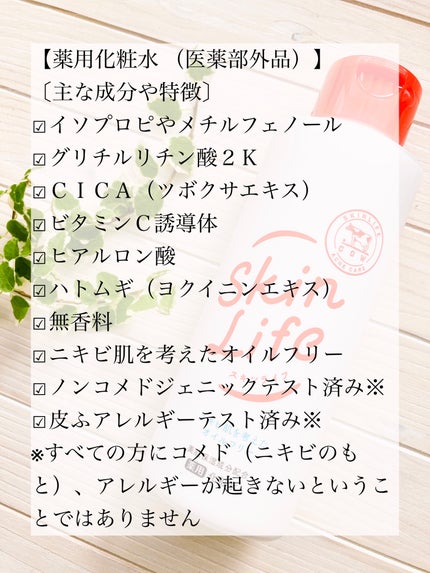 【薬用化粧水 （医薬部外品）】
〔主な成分や特徴〕
☑イソプロピやメチルフェノール
☑グリチルリチン酸２Ｋ
☑ＣＩＣＡ（ツボクサエキス）
☑ビタミンＣ誘導体
☑ヒアルロン酸
☑ハトムギ（ヨクイニンエキス）
☑無香料
☑ニキビ肌を考えたオイルフリー
☑ノンコメドジェニックテスト済み※
☑皮ふアレルギーテスト済み※
※すべての方にコメド（ニキビのも
と）、アレルギーが起きないというこ
とではありません
SKINLIFE
COW
ACNE CARE
Skin
Life
スキンライフ
薬用